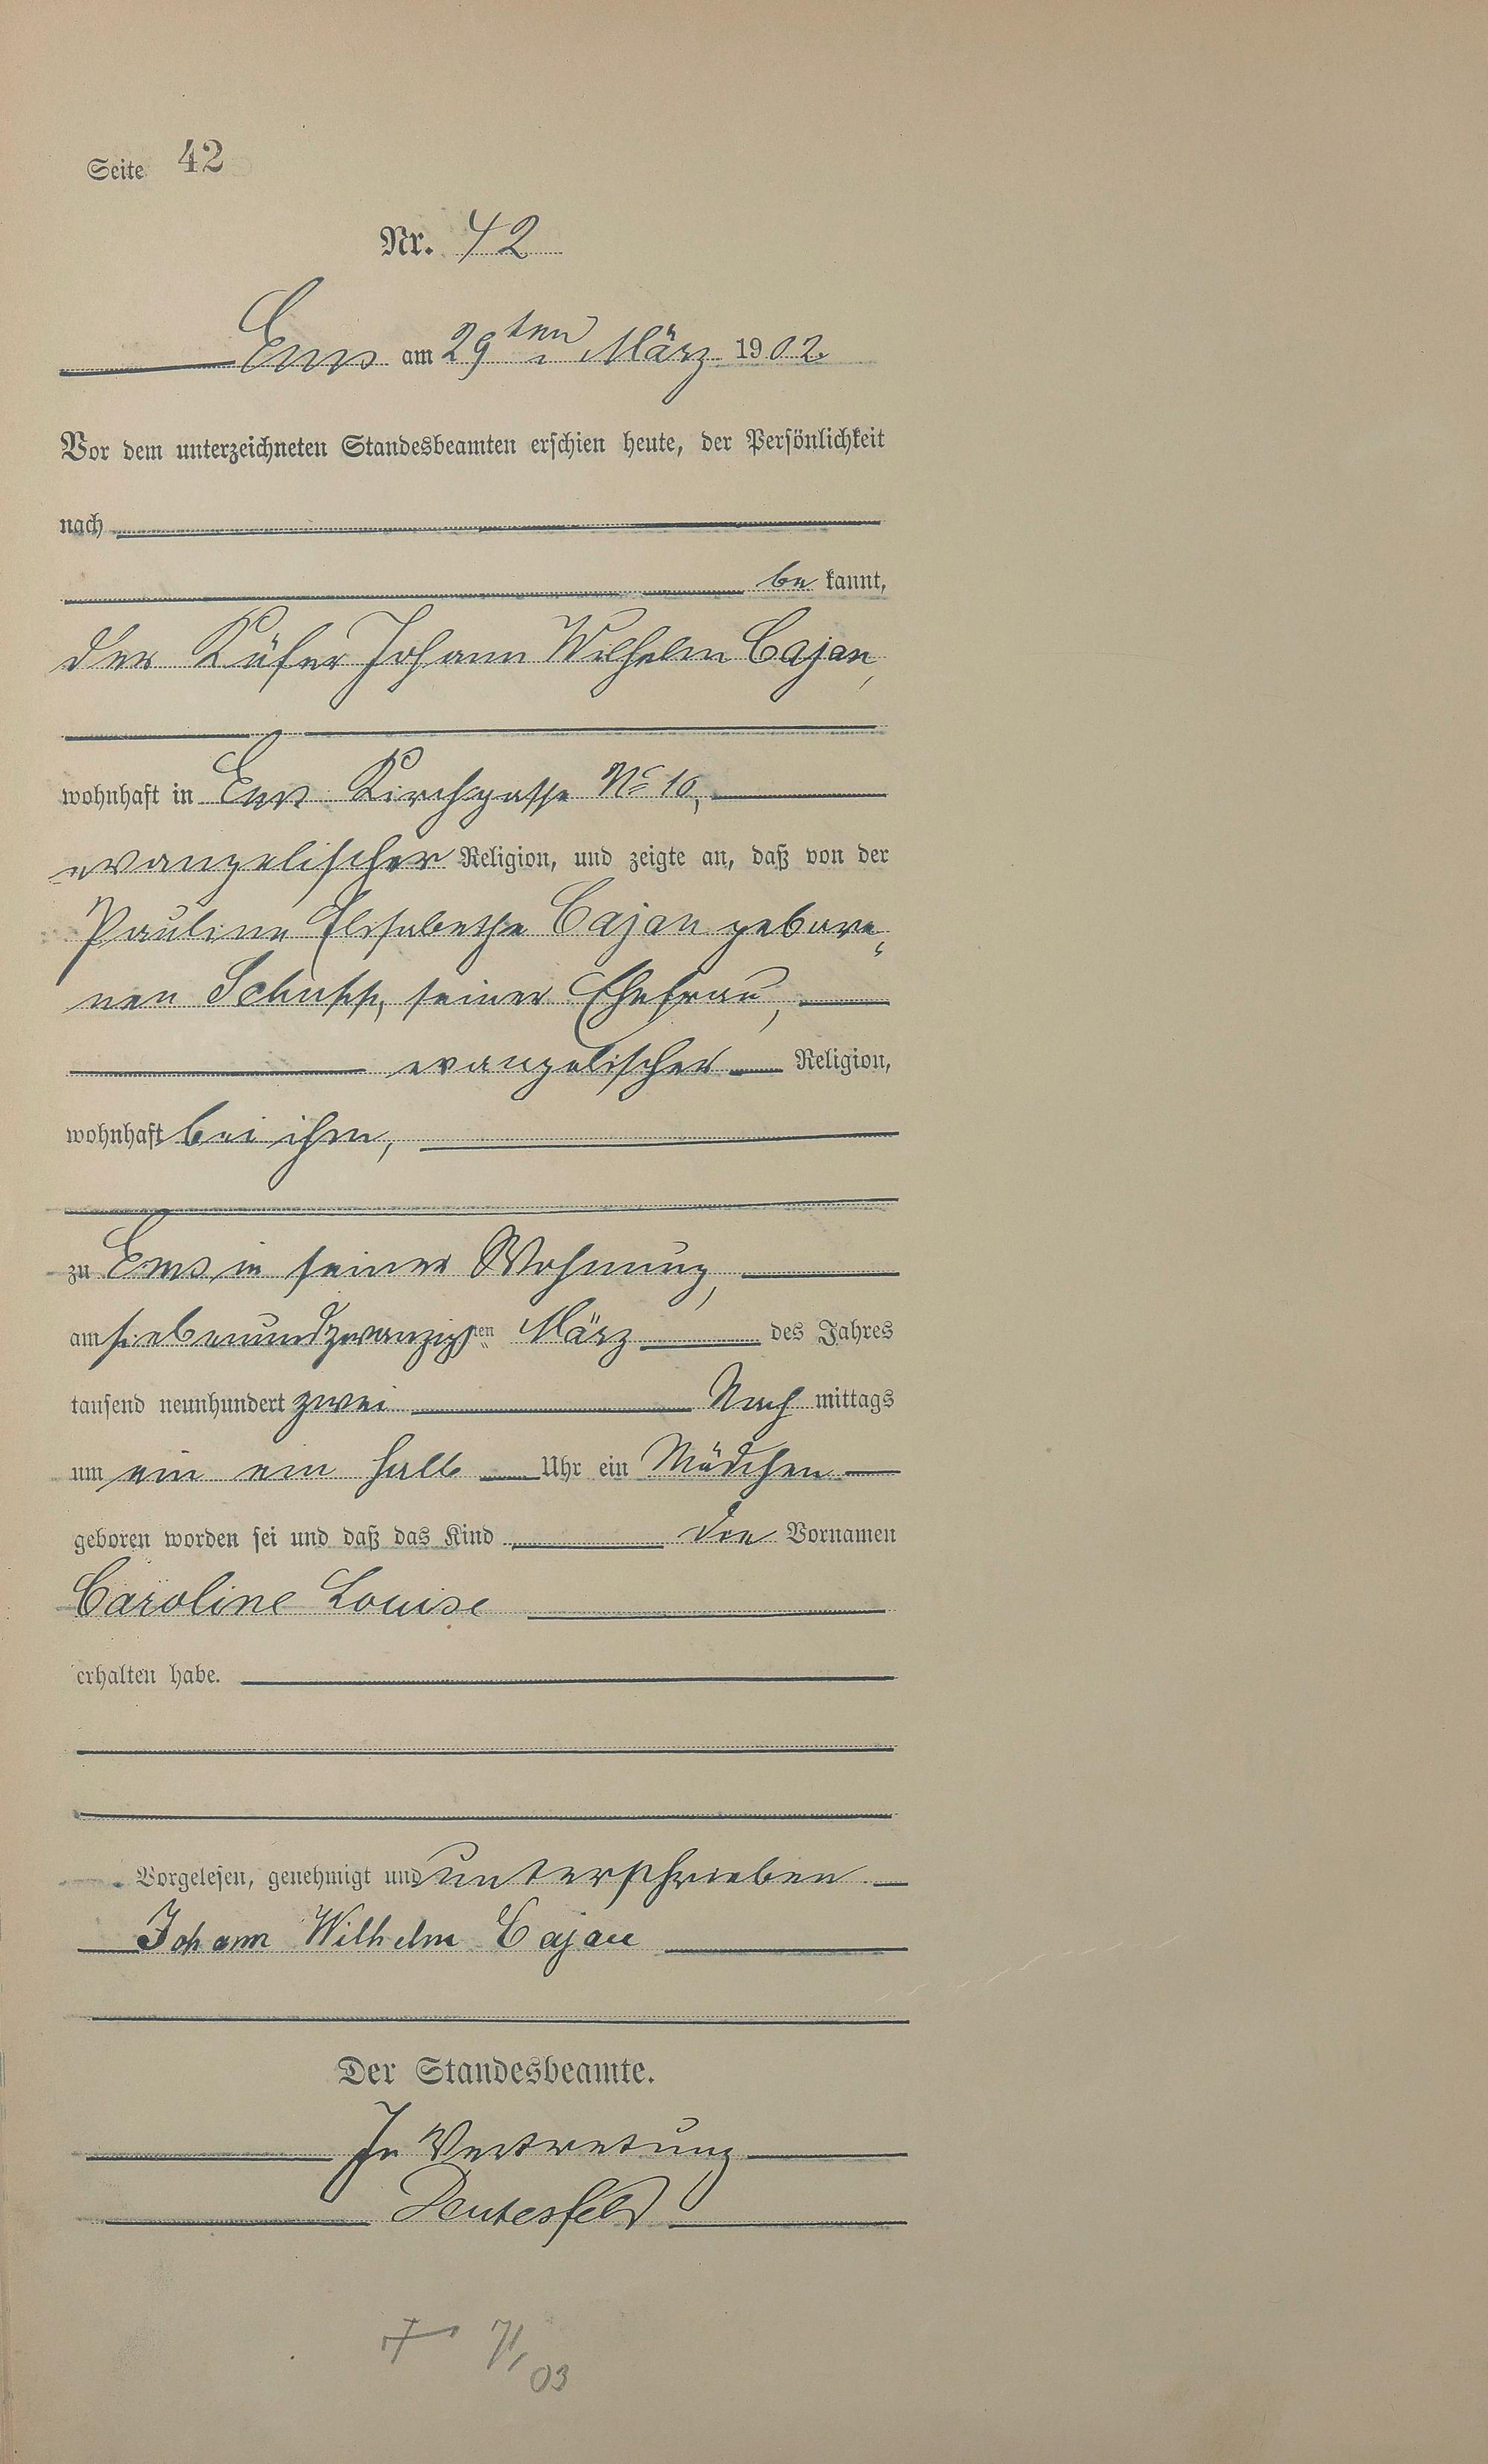 Seite 42
Nr. 42
Ems am 29ten März 1902.
Vor dem unterzeichneten Standesbeamten erschien heute, der Persönlichkeit
nach
be kannt,
der Küfer Johann Wilhelm Cajan,
wohnhaft in Ems Kirchgasse No 10,
evangelischer Religion, und zeigte an, daß von der
Pauline Elisabethe Cajan gebore„
nen Schupp, seiner Ehefrau,
evangelischer Religion,
wohnhaft bei ihm,
zu Ems in seiner Wohnung,
am siebenundzwanzigsten März des Jahres
tausend neunhundert zwei Nach mittags
um ein ein halb Uhr ein Mädchen
geboren worden sei und daß das Kind die Vornamen
Caroline Louise
erhalten habe.
Vorgelesen, genehmigt und unterschrieben
Johann Wilhelm Cajan
Der Standesbeamte.
In Vertretung
† 71/03